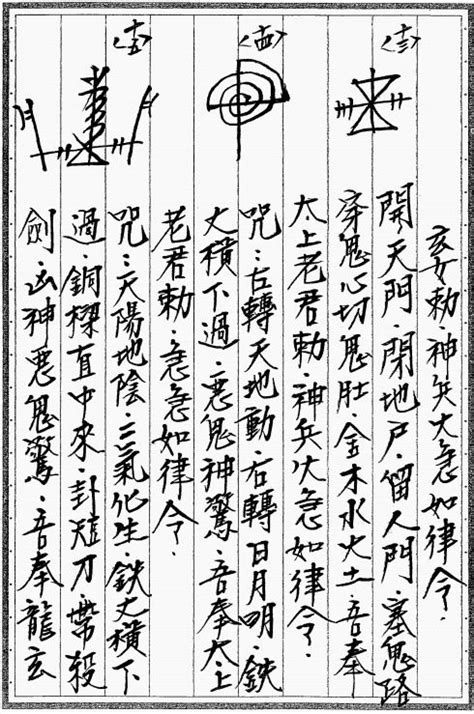 亥勅·神兵火急如律令·
〈十三〉
開天門·閉地戶·留人門·塞鬼路
穿鬼心切鬼肚·金木水火土·吾奉
太上老君勅·神兵火急如律令·
〈十四〉
咒:左轉天地動·右轉日月明·鉄
丈橫下過·惡鬼神驚·吾奉太上
老君勅·急急如律令·
〈十五〉
咒:天陽地陰·二氣化生·鉄丈橫下
過·銅樑直中來·卦短刀·帶殺
劍·凶神惡鬼驚·吾奉龍玄